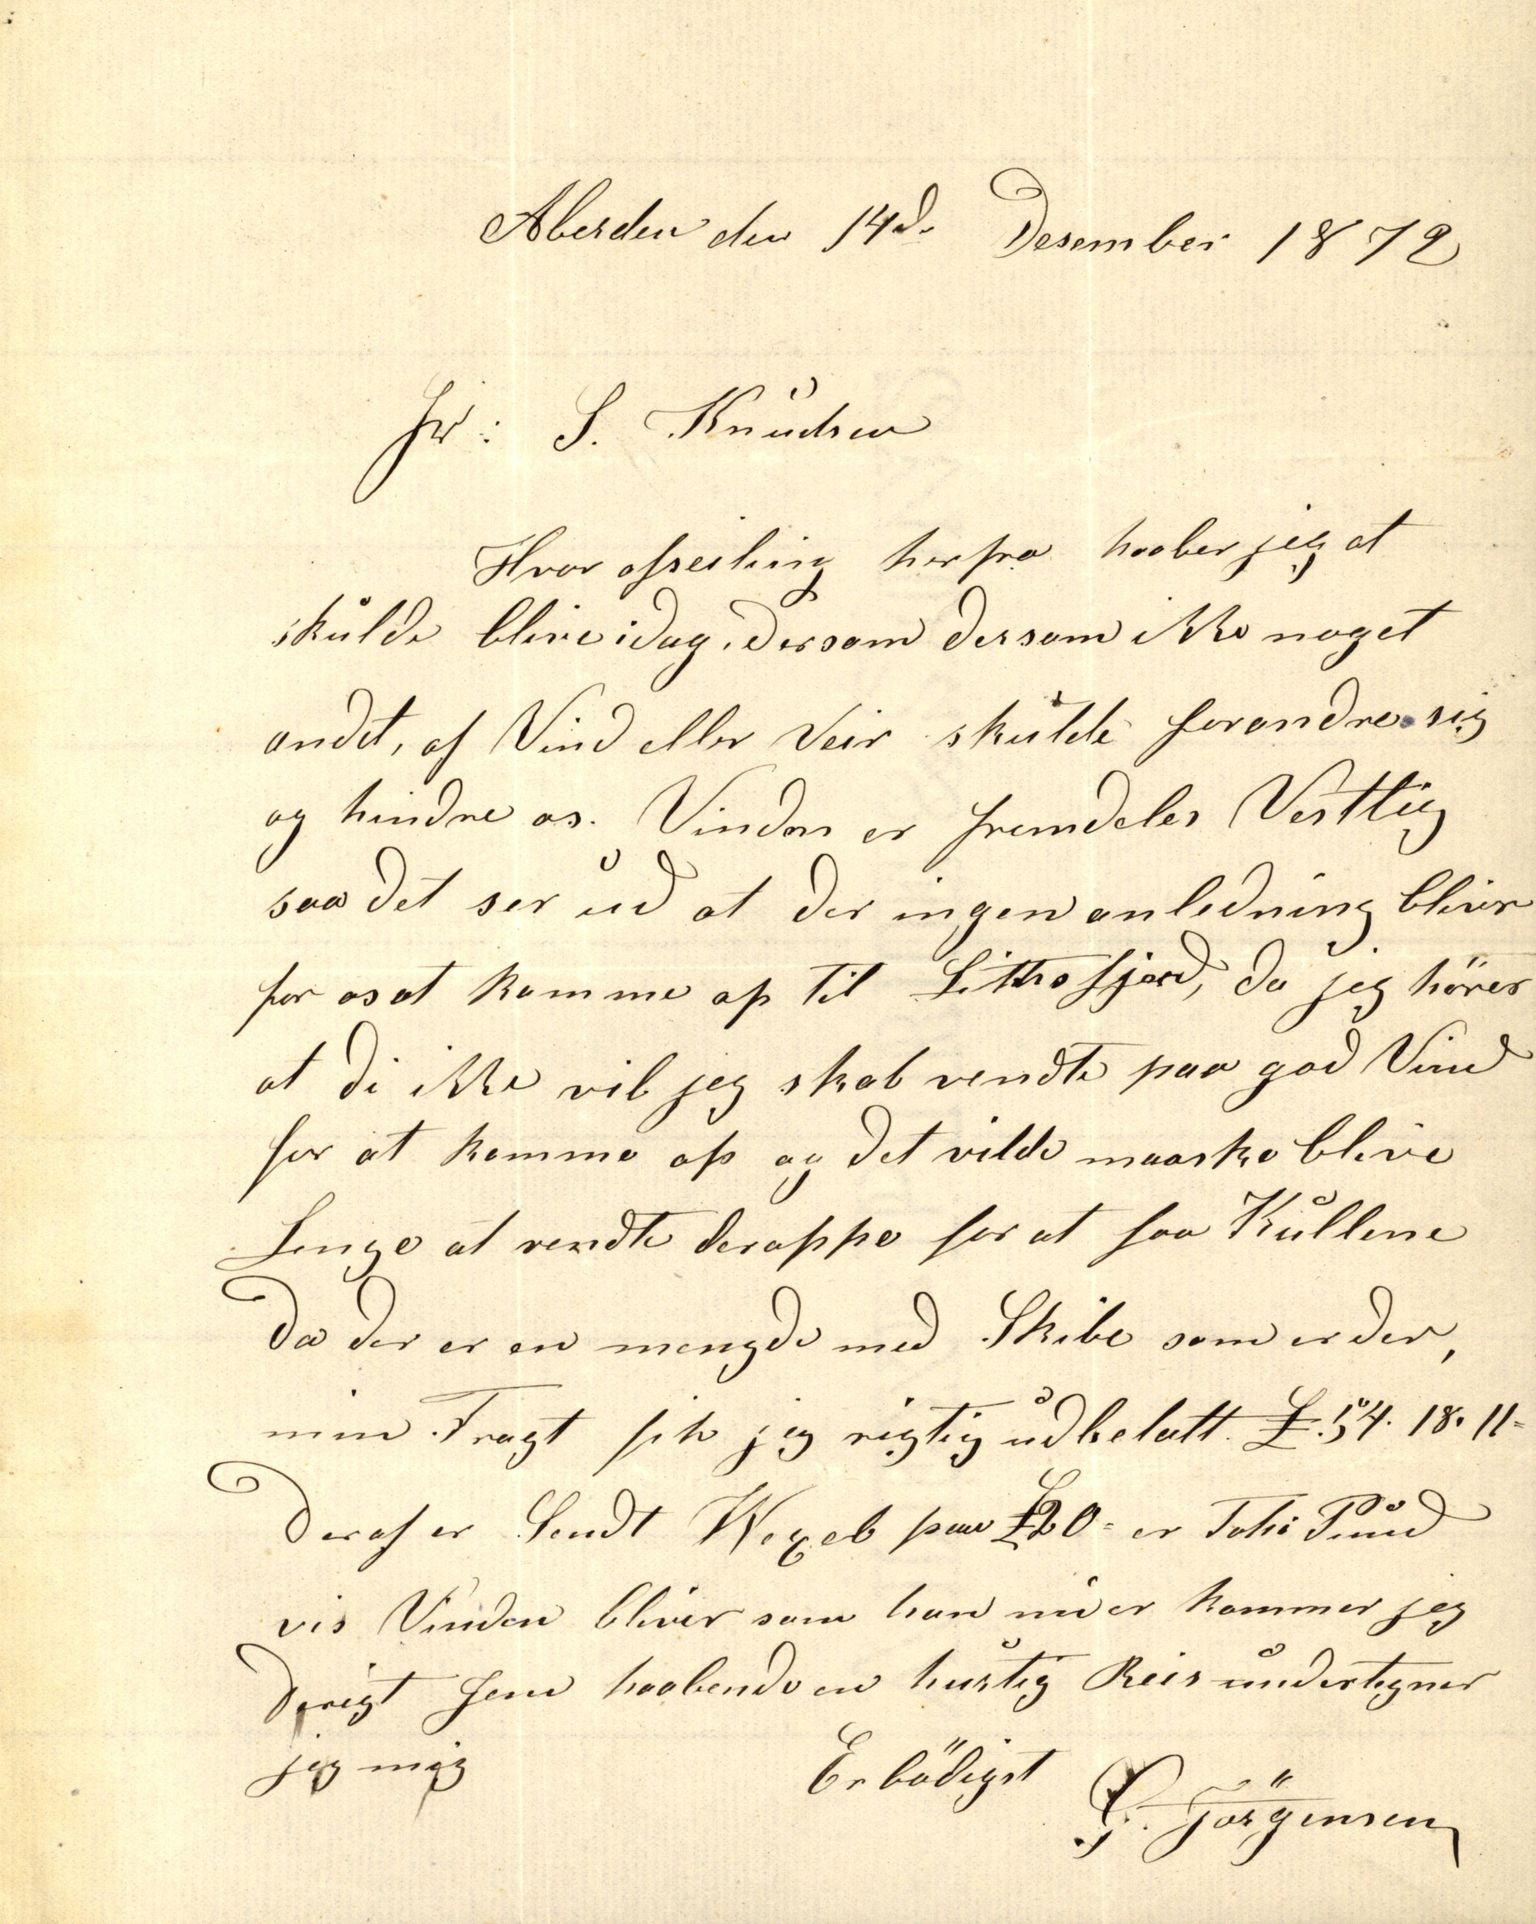 Aberden den 14d. Desember 1872
Hr: S. Knudsen
Hvor afseiling herfra haaber jeg at
skulde blive idag, dersom dersom ikke noget
andet, af Vind eller Veir skulde forandre sig
og hindre os. Vinden er fremdeles Vestlig
saa det ser ud at der ingen anledning bliver
for os at komme op til Littho fjord, da jeg hörer
at di ikke vil jeg skal vendte paa god Vind
for at komme op og det vilde maaske blive
Lenge at vendte deroppe for at faa Kullene
Da der er en mengde med Skibe som er der,
min Fragt fik jeg rigtig udbetalt £54. 18. 11=
Deraf er Sendt Wexel paa £20= er Tohi Pund
vis Vinden bliver som han nu er kommer jeg
Derigt Hem haabende en hurtig Reis undertegner
jeg mig
Erbödigst
G. Jörgensen